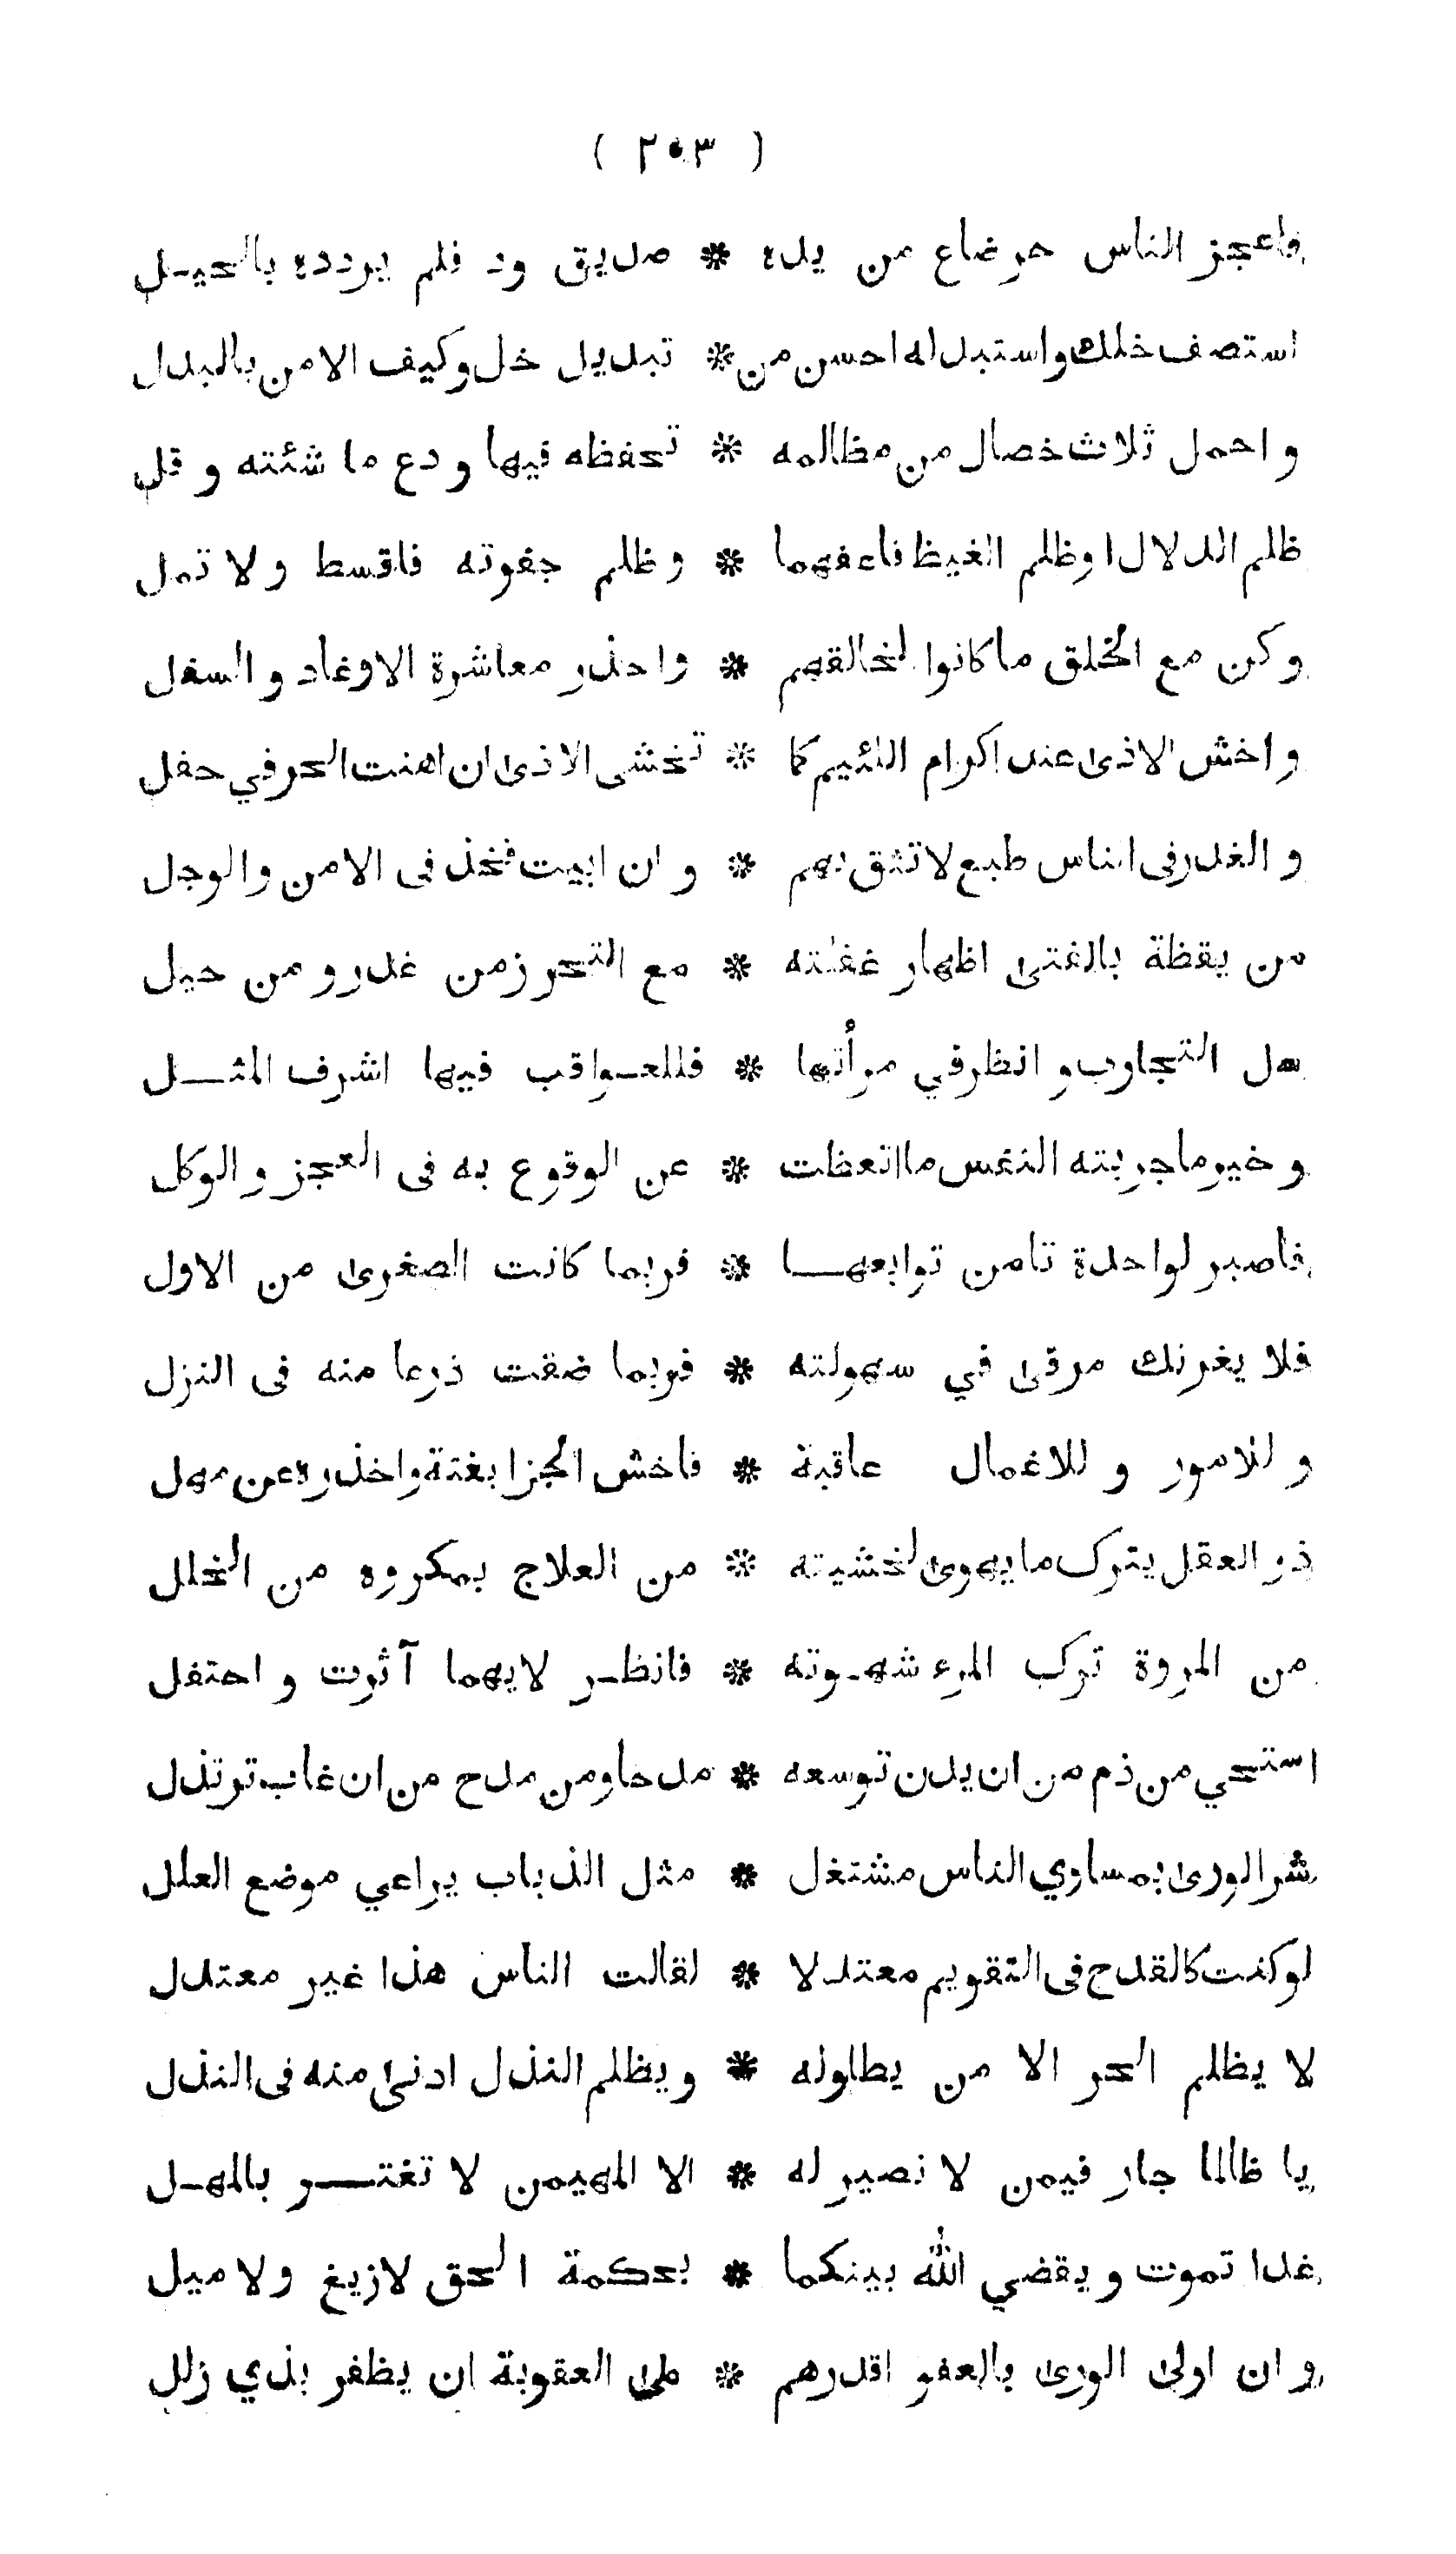 ( ٢٠٣ )
واعجز الناس حرضاع من يده * صديق ود فلم يردده بالحيل
استصف خلك واستبدله احسن من * تبديل خل وكيف الامن بالبدل
واحمل ثلاث خصال من مظالمه * تحفظه فيها ودع ما شئته وقل
ظلم الدلال اوظلم الغيظ فاعفهما * وظلم جفوته فاقسط ولا تمل
وكن مع الخلق ماكانوا لخالقهم * واحذر معاشرة الاوغاد والسفل
واخش الاذى عند اكرام اللئيم كما * تخشى الاذى ان اهنت الحر في حفل
والغدر فى الناس طبع لا تثق بهم * وان ابيت فخذ فى الامن والوجل
من يقظة بالفتى اظهار غفلته * مع التحرز من غدر ومن حيل
سل التجارب وانظر في مرأتها * فللعواقب فيها اشرف المثل
وخير ماجربته النفس ما اتعظت * عن الوقوع به فى العجز والوكل
فاصبر لواحدة تامن توابعها * فربما كانت الصغرى من الاول
فلا يغرنك مرقى في سهولته * فربما ضقت ذرعا منه فى النزل
وللامور وللاعمال عاقبة * فاخش الجزا بغتة واخذره عن مهل
ذو العقل يترك ما يهوى لخشيته * من العلاج بمكروه من الخلل
من المروة ترك المرء شهوته * فانظر لايهما آثرت واحتفل
استحي من ذم من ان يدن توسعه * مدحا ومن مدح من ان غاب ترتذل
شر الورى بمساوي الناس مشتغل * مثل الذباب يراعي موضع العلل
لو كنت كالقدح فى التقويم معتدلا * لقالت الناس هذا غير معتدل
لا يظلم الحر الا من يطاوله * ويظلم النذل ادنى منه فى النذل
يا ظالما جار فيمن لا نصير له * الا المهيمن لا تغتر بالمهل
غدا تموت ويقضي الله بينكما * بحكمة الحق لازيغ ولا ميل
وان اولى الورى بالعفو اقدرهم * على العقوبة ان يظفر بذي زلل